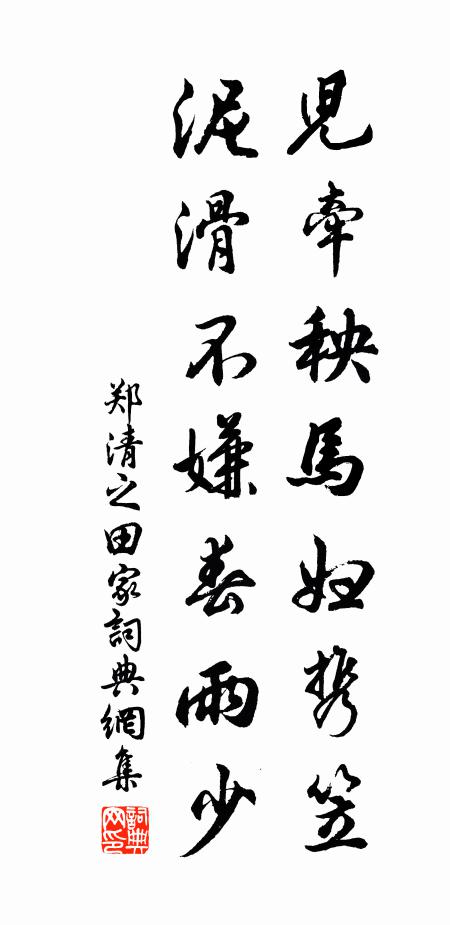 兒牽秧馬婦携笠
泥滑不嫌春雨少
郑清之田家詞典網集
詞典网印